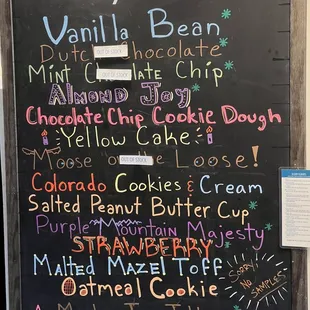 Vanilla Bean*
Dutch Chocolate*
OUT OF STOCK
Mint Chocolate Chip*
OUT OF STOCK
Almond Joy*
Chocolate Chip Cookie Dough
Yellow Cake*
Moose on the Loose!
OUT OF STOCK
Colorado Cookies & Cream
Salted Peanut Butter Cup*
Purple Mountain Majesty*
STRAWBERRY*
Malted Mazel Toff
Oatmeal Cookie
SORRY,
NO
SAMPLES*